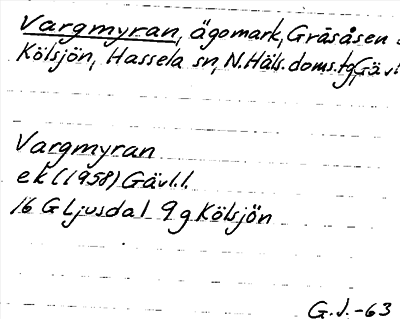 Vargmyran, ägomark, Gräsåsen
Kölsjön, Hassela sn, N.Häls.doms.tg, Gävl
Vargmyran
ek (1958) Gävl.l.
16 G Ljusdal 9 g Kölsjön
G.J.-63